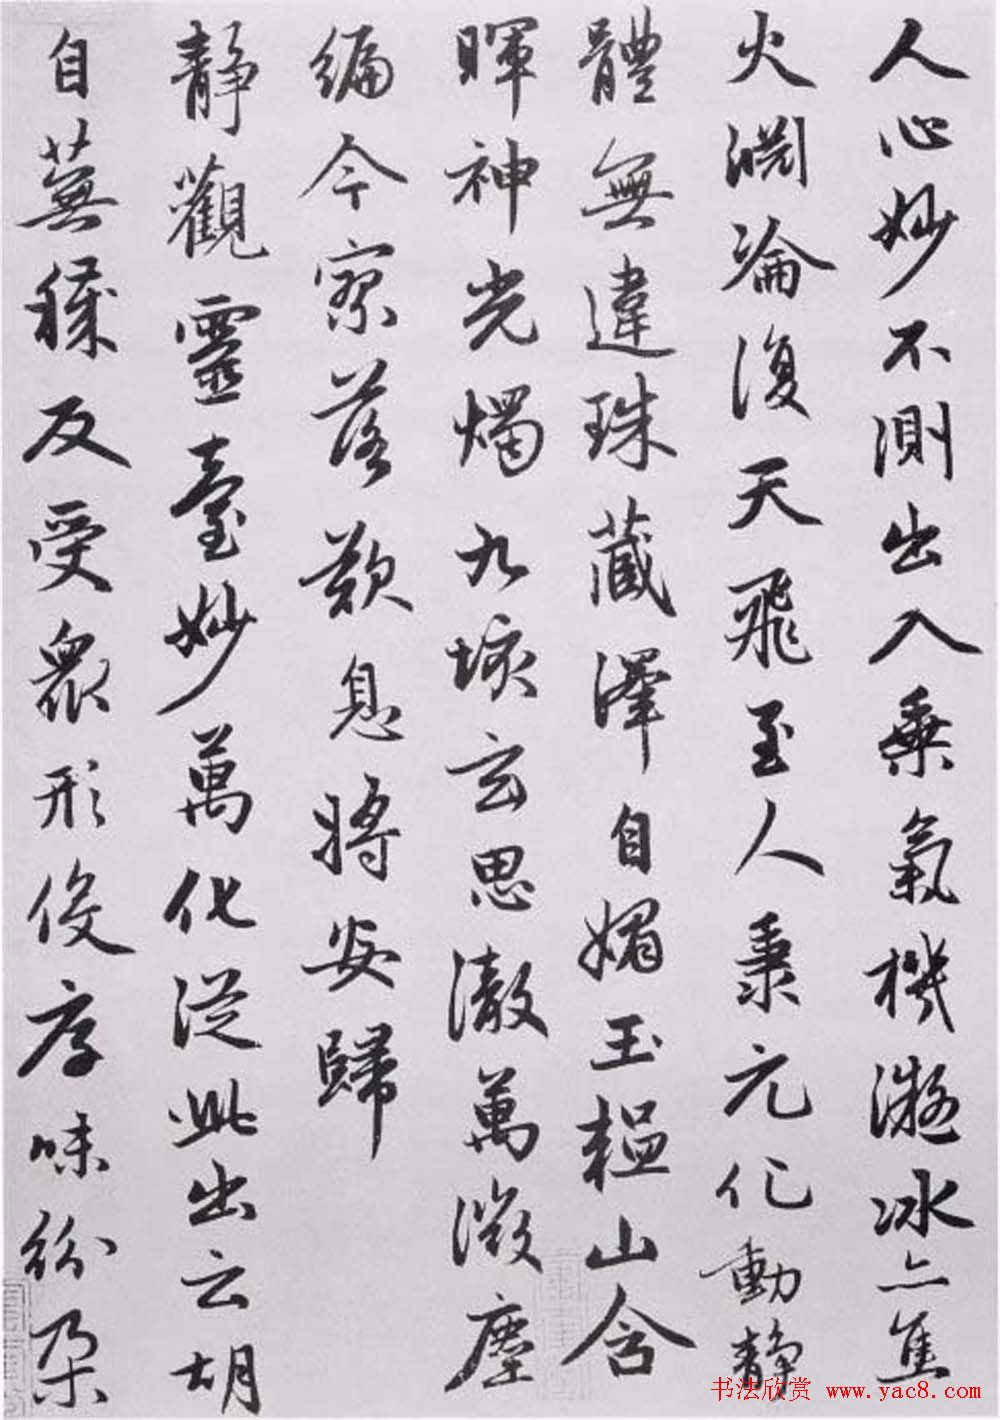 人心妙不測出入乗氣機凝冰亦焦
火淵淪復天飛至人秉元化動静
體無違珠藏澤自媚玉韞山含
暉神光燭九垓玄思澈萬微塵
編今寥落歎息將安歸
靜觀靈臺妙萬化從此出云胡
自蕪穢反受衆形役厚味紛朶
书法欣赏 www.yac8.com